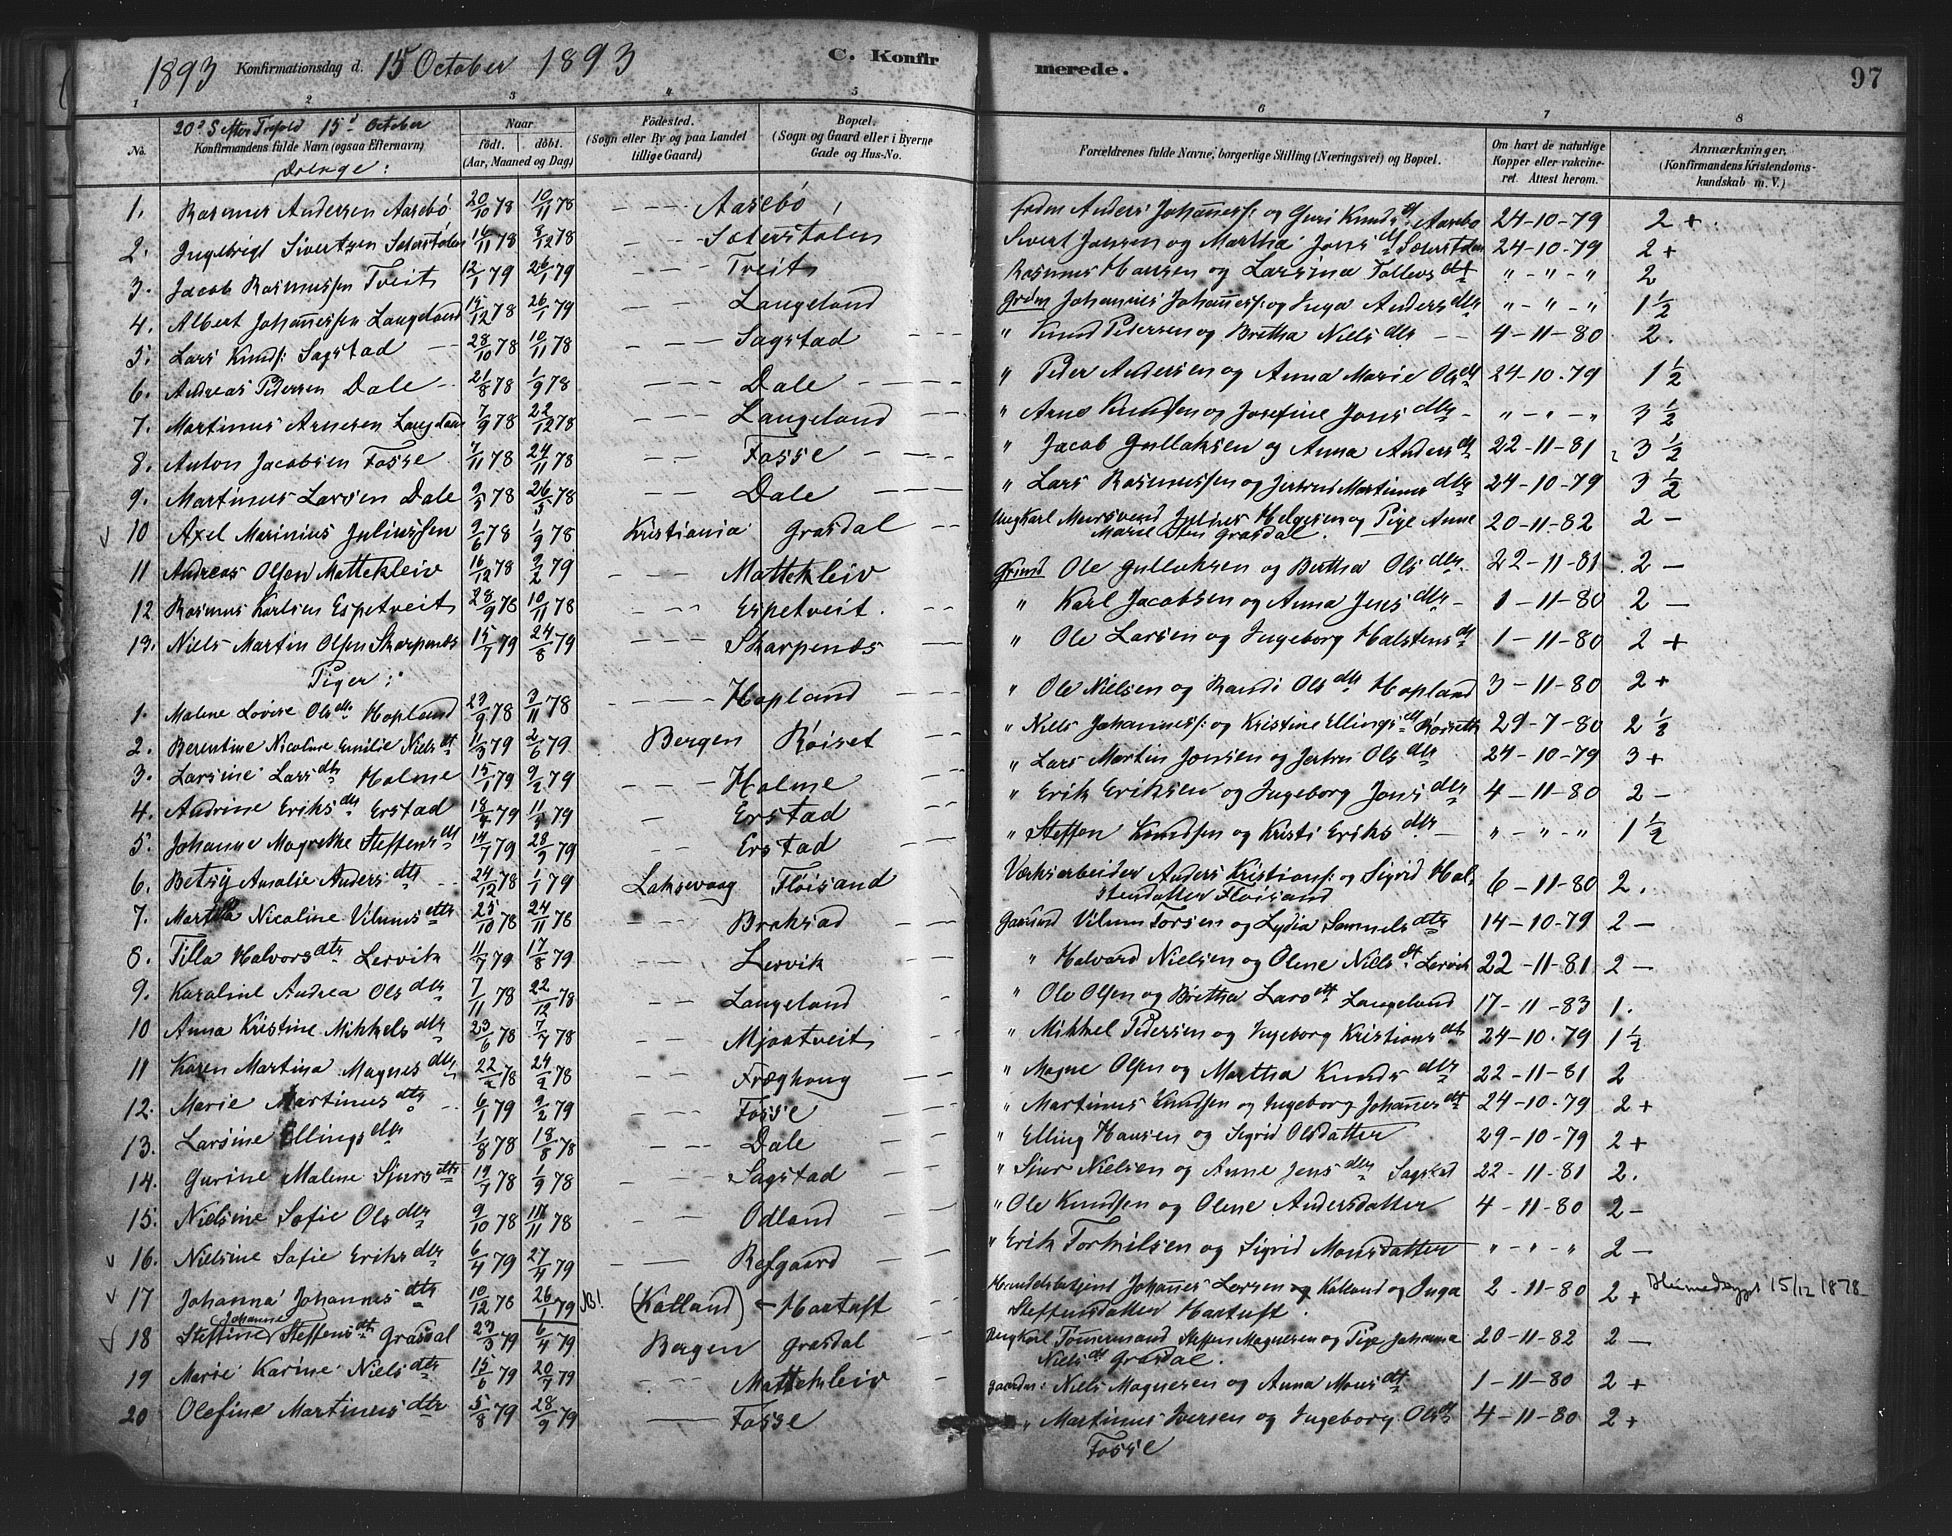 1893 Konfirmationsdag d. 15 October 1893 C. Konfir merede. 97
1 2 3 4 5 6 7 8
No. 20de S efter Trefold 15d October
Konfirmandens fulde Navn (ogsaa Efternavn)
Naar
født. døbt.
(Aar, Maaned og Dag)
Fødested.
(Sogn eller By og paa Landet
tillige Gaard)
Bopæl.
(Sogn og Gaard eller i Byerne
Gade og Hus-No.
Forældrenes fulde Navne, borgerlige Stilling (Næringsvei) og Bopæl.
Om havt de naturlige
Kopper eller vakcine-
ret. Attest herom.
Anmærkninger.
(Konfirmandens Kristendoms-
kundskab m. V.)
Drenge:
1. Rasmus Andersen Aasebö 20/10 78 10/11 78 - - - Aasebö Anders Johannes: og Guri Knudsdt Aasebo 24-10-79 2 +
2. Ingebrigt Sivertsen Sæterstölen 16/11 78 8/12 78 - - Sæterstölen Sivert Jonsen og Martha Jonsdt Sæterstölen 24-10-79 2 +
3. Jacob Rasmussen Tveit 12/1 79 26/1 79 - - Tveit Rasmus Hansen og Larsina Tollevsdt " - " - " 2
4. Albert Johannessen Langeland 15/12 78 26/1 79 - - Langeland Grdm Johannes Johannes: og Inga Andersdtr " - " - " 1 1/2
5. Lars Knuds: Sagstad 28/10 78 10/11 78 - - - Sagstad " Knud Pedersen og Bretha Nielsdtr 4-11-80 2.
6. Andreas Pedersen Dale 21/8 78 1/9 78 - - - Dale " Peder Andersen og Anna Marie Olsdt 24-10-79 1 1/2
7. Martinus Arnesen Langeland 7/9 78 22/12 78 - - - Langeland " Arne Knudsen og Josefine Jonsdtr " - " - " 3 1/2
8. Anton Jacobsen Fosse 7/11 78 24/11 78 - - Fosse " Jacob Gullaksen og Anna Andersdt 22-11-81 3 1/2
9. Martinus Larsen Dale 9/5 78 26/5 78 - - Dale " Lars Rasmussen og Jertrud Martinusdtr 24-10-79 3 1/2
10 Axel Marinius Juliussen 9/6 78 1/9 78 Kristiania Grasdal Ungkarl Mursvend Julius Helgesen og Pige Anne
Marie Grasdal. 20-11-82 2 -
11 Andreas Olsen Mattekleiv 16/12 78 9/2 79 - - - Mattekleiv Grmd Ole Gullaksen og Bertha Olsdtr 22-11-81 2 -
12 Rasmus Karlsen Espetveit 28/9 78 10/11 78 - - - Espetveit. " Karl Jacobsen og Anna Jensdtr 1-11-80 2 -
13. Niels Martin Olsen Skarpenes 15/7 79 24/8 79 - - - Skarpenes " Ole Larsen og Ingeborg Halstensdt 1-11-80 2 +
Piger:
1. Malene Lovise Olsdtr Hopland 23/9 78 3/11 78 - - - Hopland " Ole Nielsen og Randi Olsdtr Hopland 3-11-80 2 +
2. Berentine Nicoline Emilie Nielsdt 11/3 79 2/6 79 Bergen Röiset " Niels Johannes: og Kristine Ellingsdt 29-7-80
3. Larsine Larsdtr Holme 15/1 79 9/2 79 - - Holme " Lars Martin Jonsen og Jertru Olsdtr 24-10-79 3 +
4. Andrine Eriksdtr Erstad 79 79 - Erstad " Erik Eriksen og Ingeborg Jonsdtr 4-11-80 2 -
5. Johanne Magrethe Steffensdt 14/7 79 28/9 79 - - Erstad " Steffen Knudsen og Kristi Eriksdtr " - " - " 1 1/2
6. Betsy Amalie Andersdtr 24/12 78 1/1 79 Laksevaag Flöisand Værksarbeider Anders Kristians: og Sigrid Hal-
stensdatter Flöisand 6-11-80 2.
7. Martha Nicoline Vilumsdtr 25/10 78 24/11 78 - - Braksad Gaarmd Vilum Torsen og Lydia Samuelsdtr 14-10-79 2 -
8. Tilla Halvorsdtr Lervik 11/7 79 17/8 79 - - Lervik " Halvard Nielsen og Olene Nielsdt Lervik 22-11-81 2 -
9. Karoline Andrea Olsdtr 7/11 78 22/12 78 - - Langeland " Ole Olsen og Brétha Larsdtr Langeland 17-11-83 1.
10 Anna Kristine Mikkelsdtr 23/6 78 7/7 78 - - Mjaatveit " Mikkel Pedersen og Ingeborg Kristiansdt 24-10-79 1 1/2
11 Karen Martina Magnesdtr 78 78 - - Fræghoug " Magne Olsen og Martha Knudsdtr 22-11-81 2
12. Marie Martinusdtr 6/1 79 9/2 79 - - Fosse " Martinus Knudsen og Ingeborg Johannesdt 24-10-79 2 +
13. Larsine Ellingsdtr 1/8 78 18/8 78 - - Dale " Elling Hansen og Sigrid Olsdatter 29-10-79 2 +
14. Gurine Malene Sjursdtr 19/7 78 1/9 78 - - Sagstad " Sjur Nielsen og Anne Jensdtr Sagstad 22-11-81 2.
15. Nielsine Sofie Olsdtr 9/10 78 11 78 - - Odland " Ole Knudsen og Olene Andersdatter 4-11-80 2 -
16. Nielsine Sofie Eriksdtr 6/4 79 27/4 79 - - Refgaard " Erik Torkilsen og Sigrid Monsdatter " - " - " 2 -
17 Johanna Johannesdtr 10/12 78 26/1 79 NB! (Kolland) - Hartuft Handelsbetjent Johannes Larsen Kolland og Inga
Steffensdatter Hartuft. 2-11-80 2 + Hjemmedøpt 15/12 1878
18 Steffine Johanne Steffensdt Grasdal 23/3 79 6/4 79 Bergen Grasdal Ungkarl Tömmermand Steffen Magnesen og Pige Johanna
Nielsdt Grasdal. 20-11-82 2 -
19 Marie Karine Nielsdtr 15/6 79 20/7 79 - - Mattekleiv gaardm: Niels Magnesen og Anna Monsdtr 1-11-80 2 +
20 Olefine Martinusdtr 5/8 79 28/9 79 - Fosse " Martinus Iversen og Ingeborg Olsdt
Fosse 4-11-80 2 +